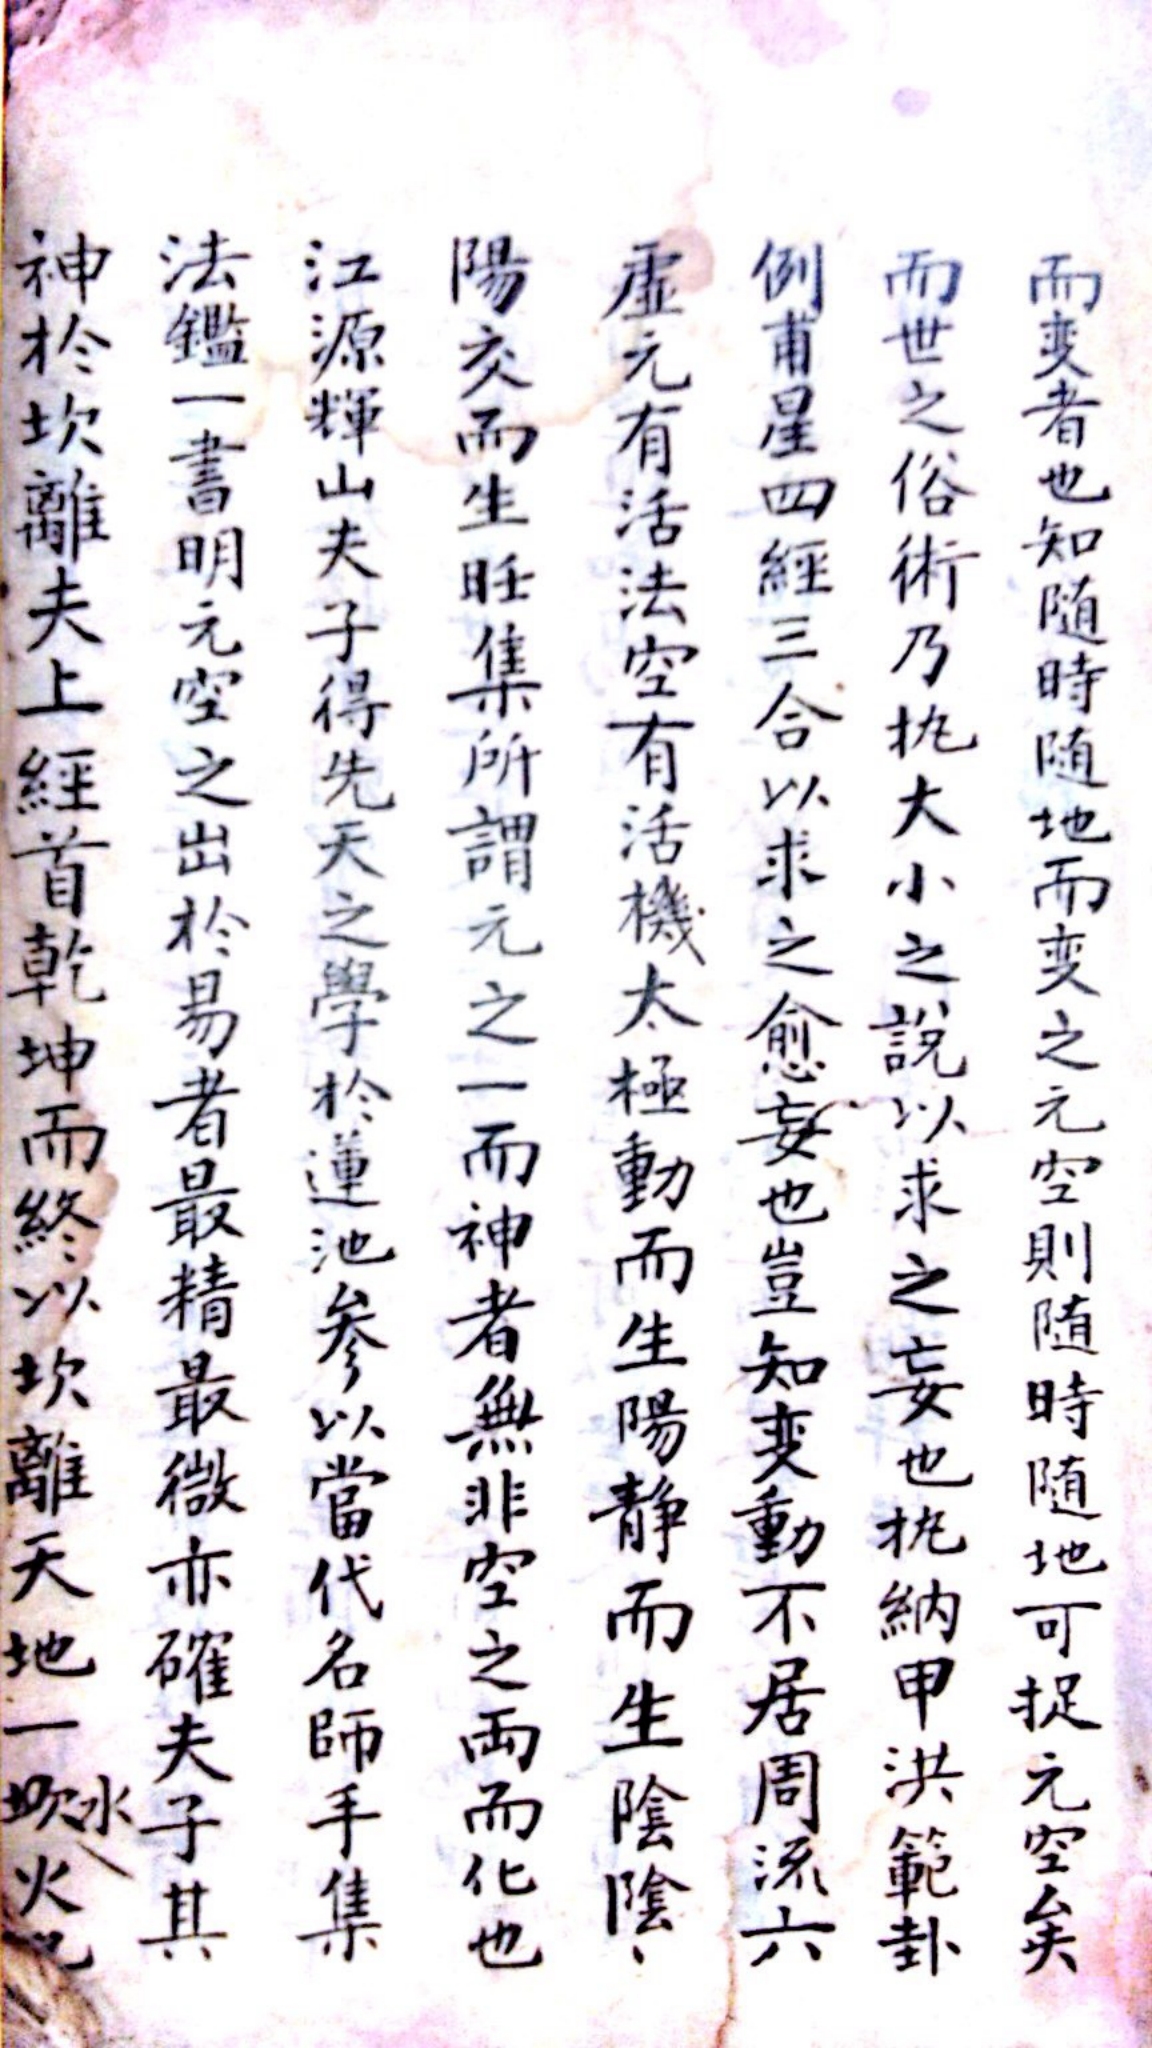 而变者也知随時随地而变之元空則随時随地可捉元空矣
而世之俗術乃执大小之說以求之妄也执納甲洪範卦
例甫星四經三合以求之愈妄也豈知变動不居周流六
虛元有活法空有活機太極動而生陽静而生陰陰
陽交而生旺集所謂元之一而神者無非空之両而化也
江源輝山夫子得先天之學於蓮池参以當代名師手集
法鑑一書明元空之出於易者最精最微亦確夫子其
神於坎離夫上經首乾坤而終以坎離天地一水火